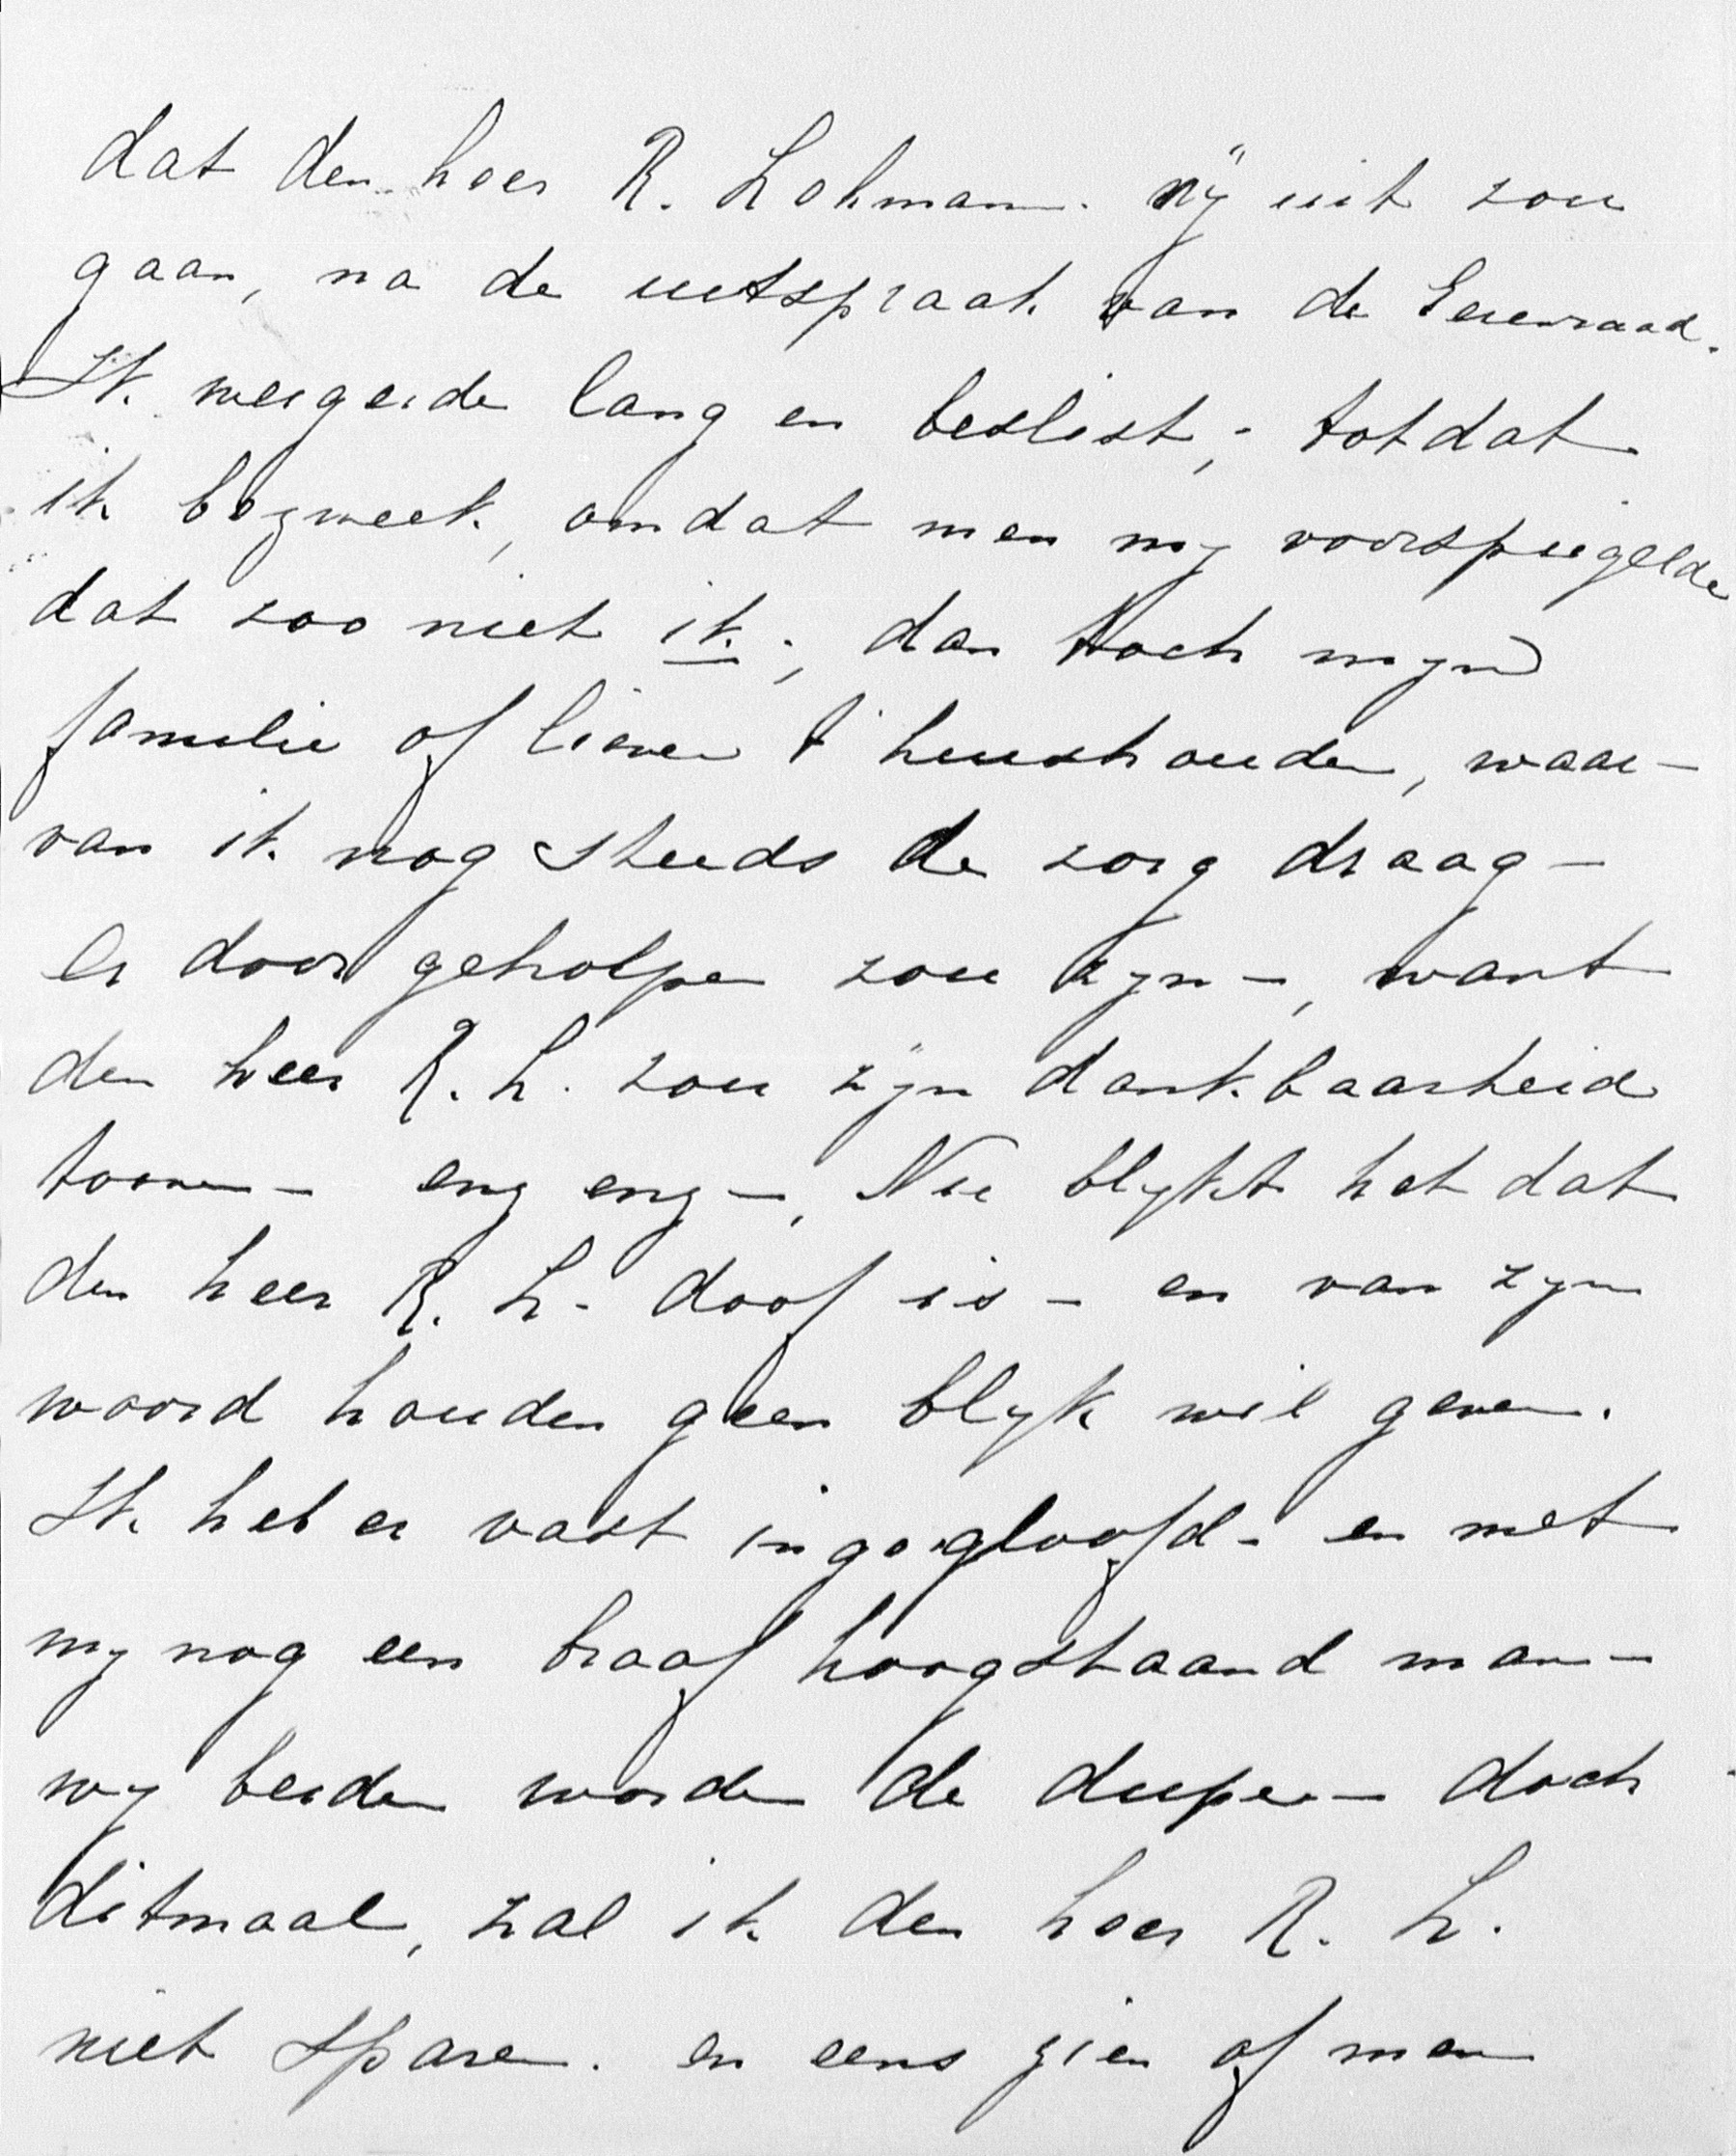 dat den heer R. Lohman. vrij uit zou
gaan, na de uitspraak van de Eereraad.
Ik weigerde lang en beslist, - totdat
ik bezweek, omdat men mij voorspiegelde
dat zoo niet ik -, dan toch mijn
familie of liever 't huishouden, waar-
van ik nog steeds de zorg draag -
er door geholpen zou zijn -, want
den heer R. L. zou zijn dankbaarheid
toonen - enz enz -, Nu blijkt het dat
den heer R. L. doof is - en van zijn
woord houden geen blijk wil geven.
Ik heb er vast in gegeloofd - en met
mij nog een braaf hoogstaand man -
wij beiden worden de dupe - doch
ditmaal, zal ik den heer R. L.
niet sparen. en eens zien of men